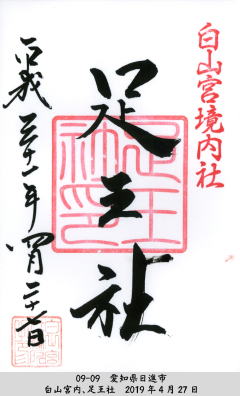 白山宮境内社
足王社
平成三十一年四月二十七日
09-09 愛知県日進市
白山宮内、足王社 2019年4月27日